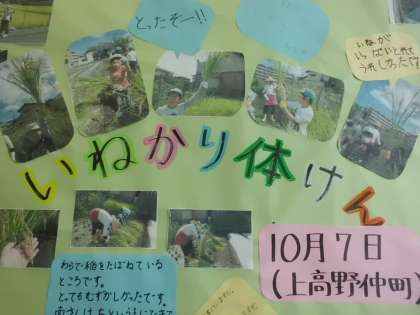 とったぞー!!
いねが
いっぱいとれて
うれしかったです
いねかり体けん
10月7日
(上高野仲町)
わらで稲をたばねている
ところです。
とってもむずかしかったです。